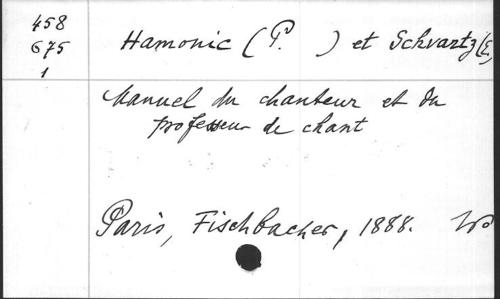 458
675
1
Hamonic (P. ) et Schvartz (E.)
Manuel du chanteur et du
professeur de chant
Paris, Fischbacher, 1888.